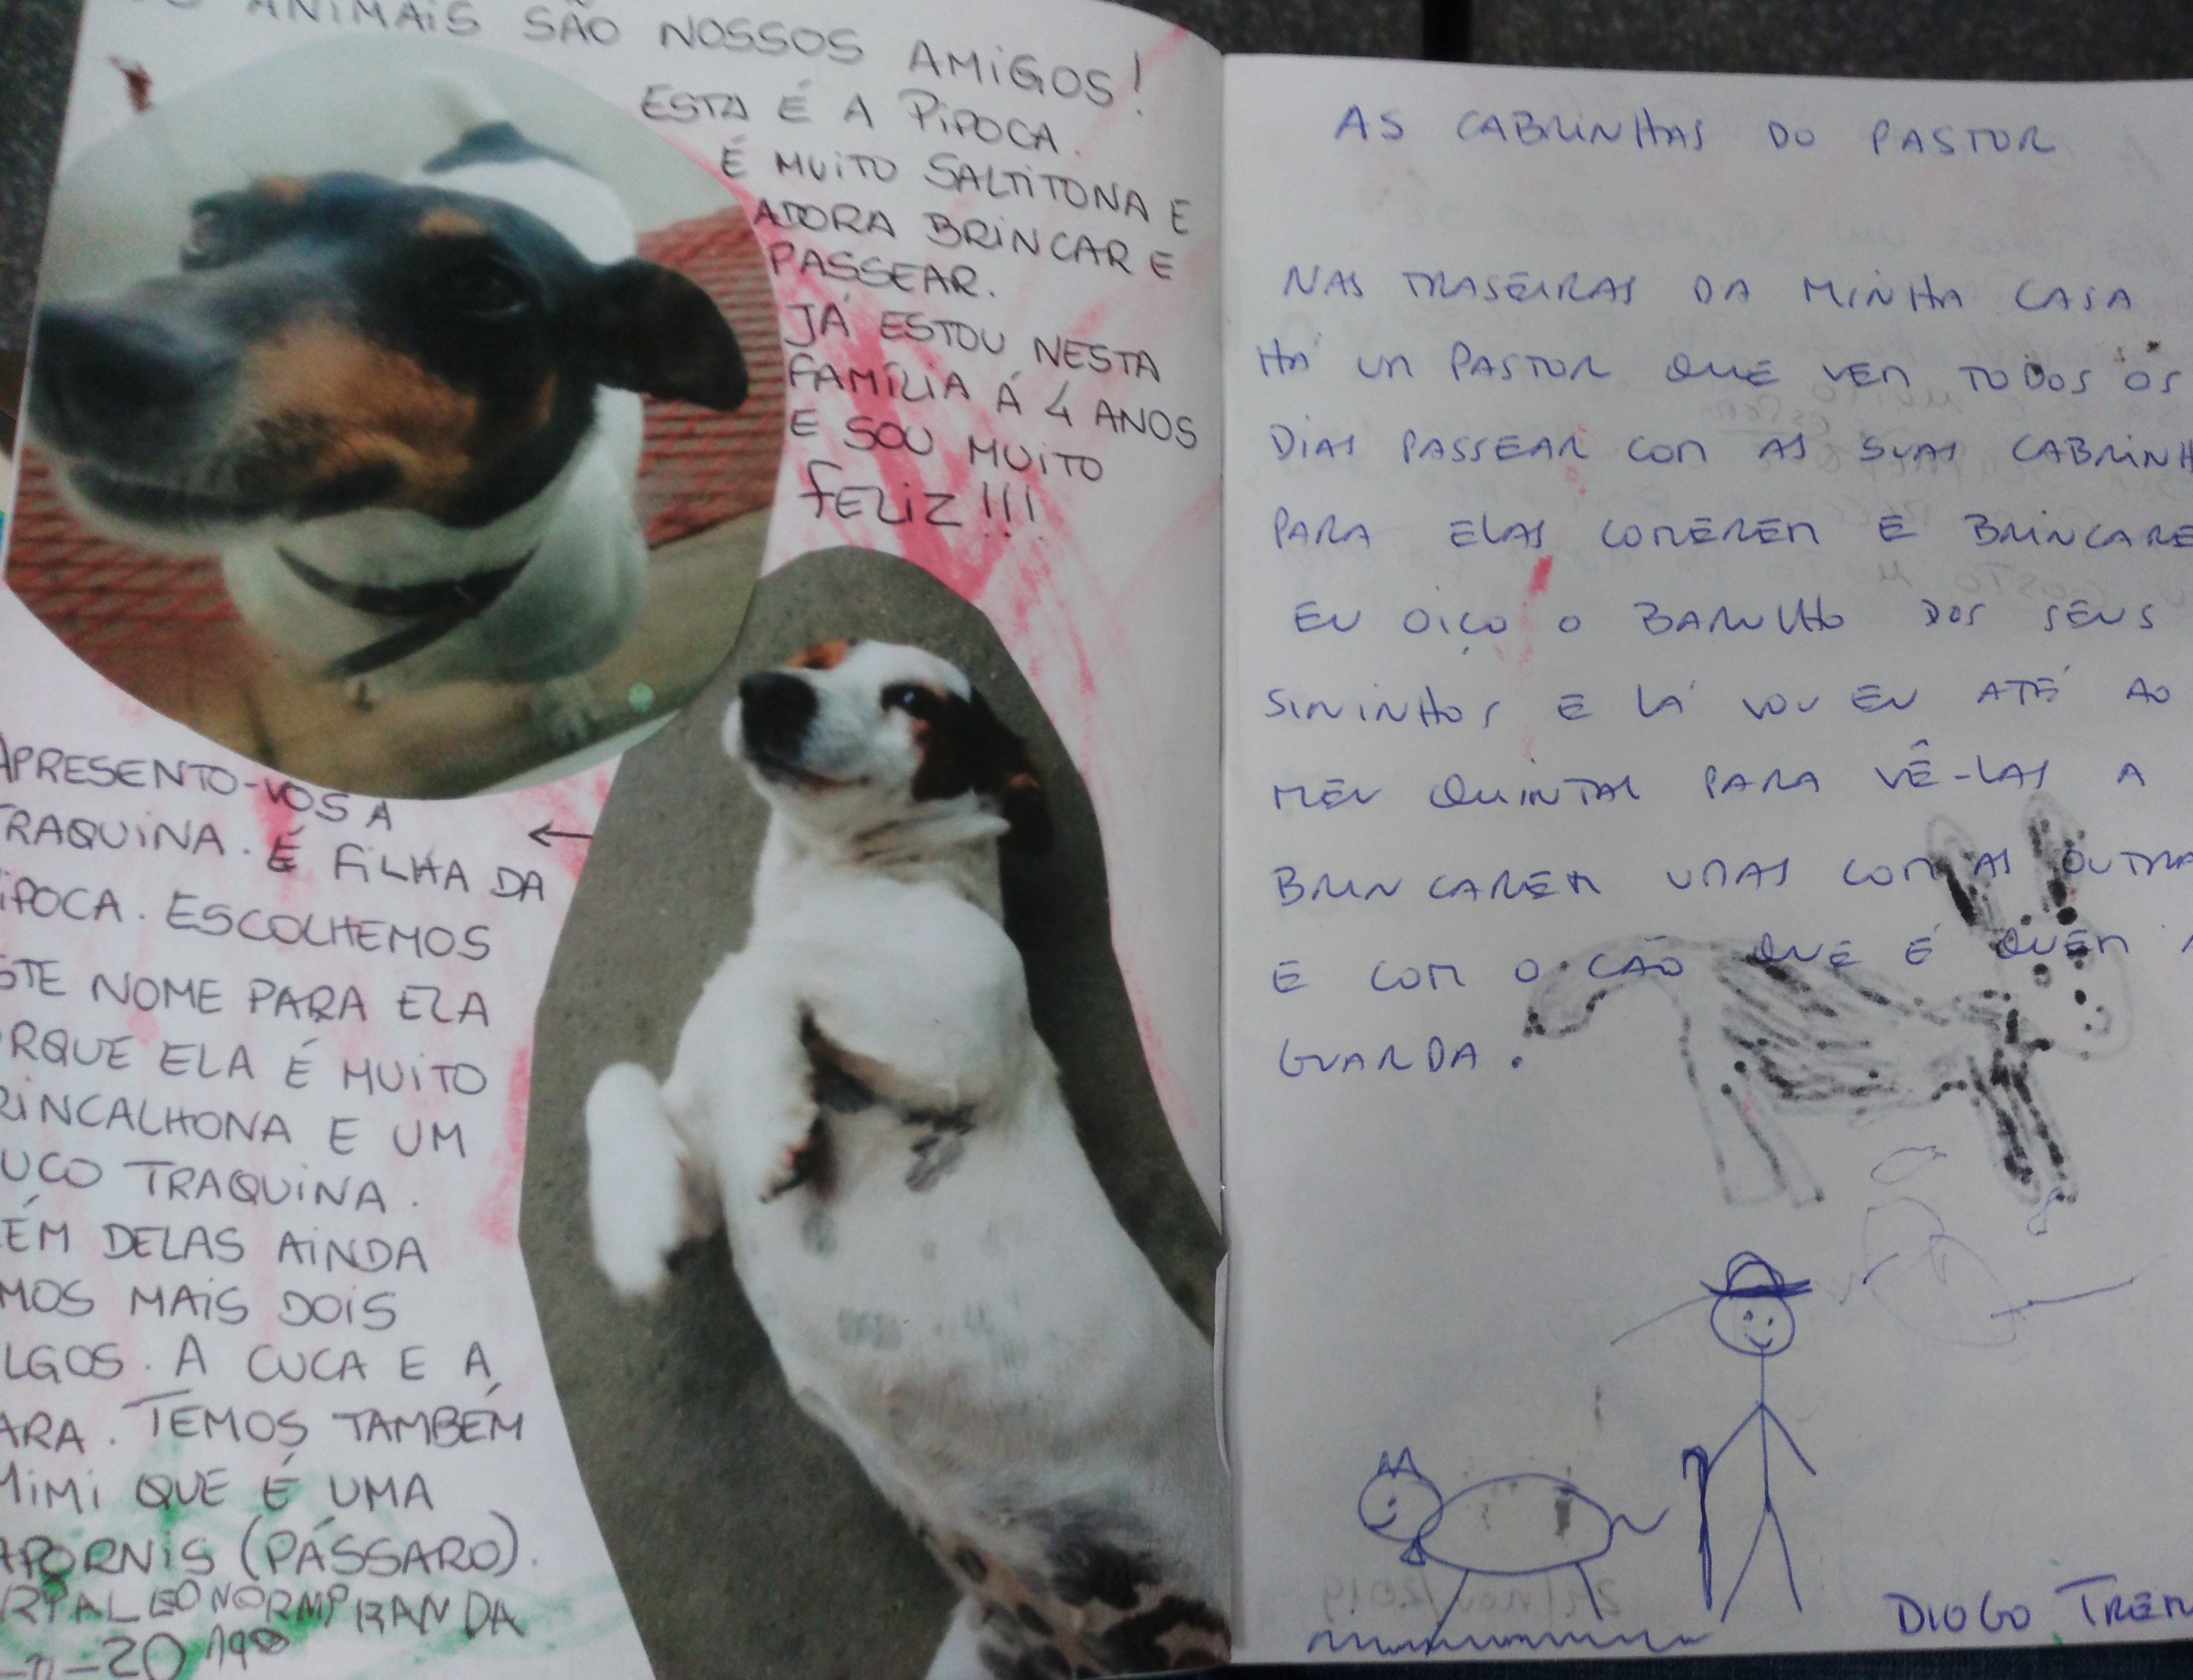 ANIMAIS SÃO NOSSOS AMIGOS!
ESTA É A PIPOCA.
É MUITO SALTITONA E
ADORA BRINCAR E
PASSEAR.
JÁ ESTOU NESTA
FAMÍLIA Á 4 ANOS
E SOU MUITO
FELIZ!!!
APRESENTO-VOS A
TRAQUINA. É FILHA DA
IPOCA. ESCOLHEMOS
STE NOME PARA ELA
RQUE ELA É MUITO
RINCALHONA E UM
UCO TRAQUINA.
ÉM DELAS AINDA
MOS MAIS DOIS
LGOS. A CUCA E A
ARA. TEMOS TAMBÉM
MIMI QUE É UMA
APORNIS (PÁSSARO).
LEONOR MIRANDA
AS CABRINHAS DO PASTOR
NAS TRASEIRAS DA MINHA CASA
HÁ UM PASTOR QUE VEM TODOS OS
DIAS PASSEAR COM AS SUAS CABRINH
PARA ELAS COMEREM E BRINCARE
EU OIÇO O BARULHO DOS SEUS
SININHOS E LÁ VOU EU ATÉ AO
MEU QUINTAL PARA VÊ-LAS A
BRINCAREM UMAS COM AS OUTRA
E COM O CÃO QUE É QUEM A
GUARDA.
DIOGO TREM